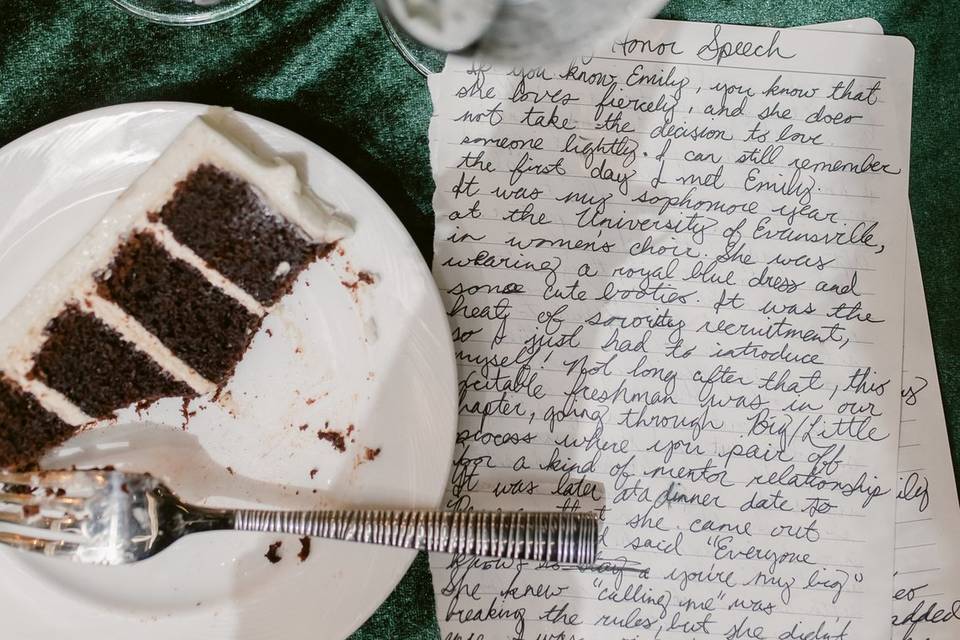 Honor Speech
If you know Emily, you know that
she loves fiercely, and she does
not take the decision to love
someone lightly. I can still remember
the first day I met Emily.
It was my sophomore year
at the University of Evansville,
in women's choir. She was
wearing a royal blue dress and
some cute booties. It was the
heat of sorority recruitment,
so I just had to introduce
myself! Not long after that, this
freshman was in our
going through Big/Little
process where you pair off
for a kind of mentor relationship
It was later at a dinner date to
she came out
said "Everyone
knows you're my big"
She knew "calling me" was
breaking the rules, but she didn't
ily
added